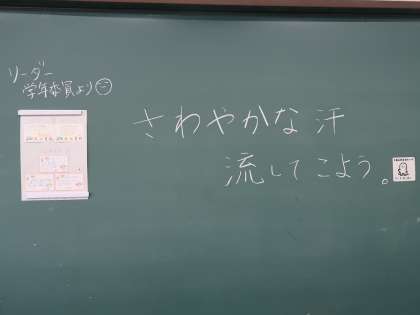 リーダー
学年委員より
さわやかな汗
流してこよう。